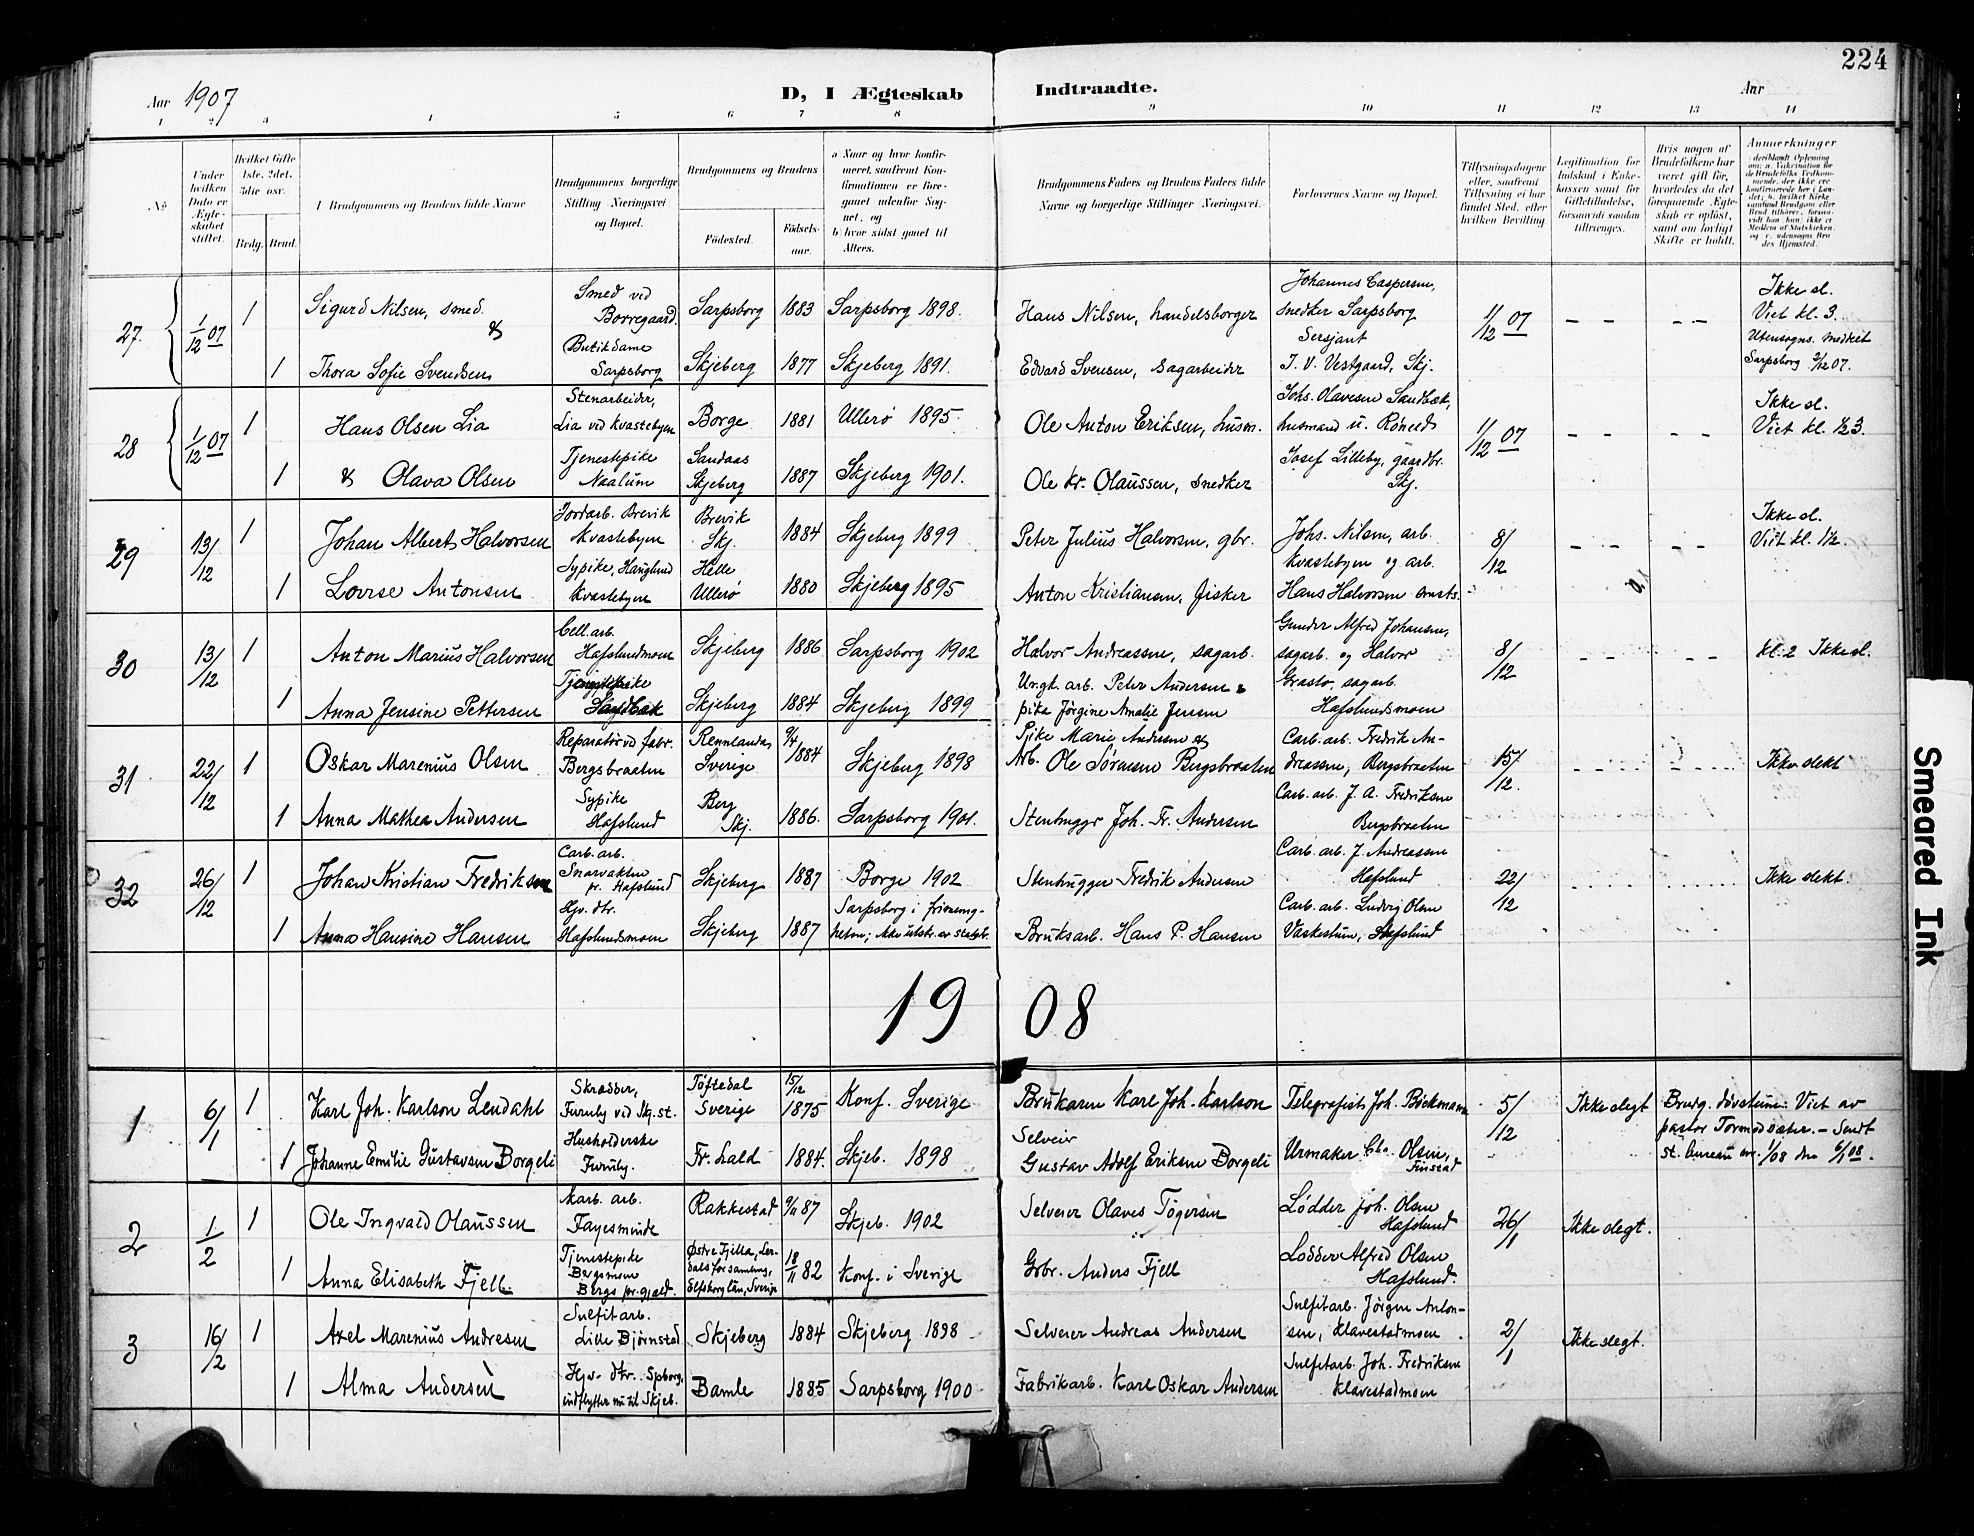 224
Aar 1907
D, I Ægteskab Indtraadte.
Aar
1 2 3 4 5 6 7 8 9 10 11 12 13 14
No.
Under hvilken Dato er Ægteskabet stiftet.
Hvilket Gifte 1ste, 2det, 3die osv.
Brdg. Brud.
Brudgommens og Brudens fulde Navne
Brudgommens borgerlige Stilling Næringsvei og Bopæl.
Brudgommens og Brudens
Födested.
Födselsaar.
a Naar og hvor konfirmeret, saafremt Konfirmationen er foregaaet udenfor Sognet, og
b) hvor sidst gaaet til Alters.
Brudgommens Faders og Brudens Faders fulde Navne og borgerlige Stillinger (Næringsvei.
Forlovernes Navne og Bopæl.
Tillysningsdagene eller, saafremt Tillysning ei har fundet Sted, efter hvilken Bevilling
Legitimation for Indskud i Enkekassen samt for Giftetilladelse, forsaavidt saadan tiltrænges.
Hvis nogen af Brudefolkene har været gift för, hvorledes da det foregaaende Ægteskab er oplöst, samt om lovligt Skifte er holdt.
Anmerkninger
27. 1/12 07 1 Sigurd Nilsen, smed. & Smed ved Borregaard. Sarpsborg 1883 Sarpsborg 1898. Hans Nilsen, handelsborger Johannes Caspersen, snedker Sarpsborg 1/12 07 Ikke sl. Viet kl. 3.
1 Thora Sofie Svendsen Butikdame Sarpsborg Skjeberg 1877 Skjeberg 1891. Edvard Svensen, sagarbeider Sersjant J. V. Vestgaard, Skj. Utensogns. medket Sarpsborg 2/12 07.
28 1/12 07 1 Hans Olsen Lia Stenarbeider, Lia ved Kvastebyen Borge 1881 Ullerö 1895. Ole Anton Eriksen, husm. Johs. Olavesen Sandbæk, husmand u. 1/12 07 Ikke sl. Viet kl. 1/2 3.
1 & Olava Olsen Tjenestepike Naalum Sandaas Skjeberg 1887 Skjeberg 1901. Ole Kr. Olaussen, snedker Josef Lilleby, gaardbr. Skj.
29 13/12 1 Johan Albert Halvorsen Jordarb. Brevik Kvastebyen Brevik Skj. 1884 Skjeberg 1899 Peter Julius Halvorsen, gbr. Johs. Nilsen, arb. Kvastebyen og arb. 8/12 Ikke sl. Viet kl. 1/2.
1 Lovise Antonsen Sypike, Hauglund Kvastebyen Helle Ullerö 1880 Skjeberg 1895 Anton Kristiansen, fisker Hans Halvorsen
30 13/12 1 Anton Marius Halvorsen Cell. arb. Hafslundmoen Skjeberg 1886 Sarpsborg 1902 Halvor Andreassen, sagarb. Gunder Alfred Johansen, sagarb. og Halvor 8/12 kl. 2 Ikke sl.
1 Anna Jensine Pettersen Tjenestepike Sandbæk Skjeberg 1884 Skjeberg 1899 Ungk. arb. Peter Andersen & pike Jörgine Amalie Jensen Grastö, sagarb. Hafslundsmoen
31 22/12 1 Oskar Marenius Olsen Reparatör ved fabr. Bergsbraaten Rennlanda, Sverige 9/4 1884 Skjeberg 1898 Pike Marie Andersen & Arb. Ole Sörensen Bergsbraaten Carb. arb. Fredrik Andreassen, Bergsbraaten 15/12. Ikke slekt
1 Anna Mathea Andersen Sypike Hafslund Berg Skj. 1886. Sarpsborg 1901. Stenhugger Joh. Fr. Andersen Carb. arb. J. A. Fredriksen Bergsbraaten
32 26/12 1 Johan Kristian Fredriksen Carb. arb. Snarvakten pr. Hafslund Skjeberg 1887 Borge 1902 Stenhugger Fredrik Andersen Carb. arb. J. Andreassen Hafslund 22/12 Ikke slekt.
1 Anna Hansine Hansen Hjv. dtr. Hafslundsmoen Skjeberg 1887 Sarpsborg i frimenigheten; ikke utskr. av statsk. Bruksarb. Hans P. Hansen Carb. arb. Ludvig Olsen Vaskestuen, Hafslund
19 08
1 6/1 1 Karl Joh. Karlson Lendahl Skrædder, Furuby ved Skj. st. Töftedal Sverige 15/12 1875 Konf. Sverige Brukaren Karl Joh. Karlson Telegrafist Joh. Böckmann 5/12 Ikke slegt Brudg. dövstum. Viet av pastor Tormodsæter. – Sendt st. bureau nr. 1/08 den 6/1 08.
1 Johanne Emilie Gustavsen Borgeli Husholderske Furuby. Fr.hald 1884. Skjeb. 1898 Selveier Gustav Adolf Eriksen Borgeli Urmaker Chr. Olsen, Finstad
2 1/2 1 Ole Ingvald Olaussen Karb. arb. Fayesminde Rakkestad 9/11 87 Skjeb. 1902 Selveier Olaves Tögersen Lödder Joh. Olsen Hafslund 26/1 Ikke slegt.
1 Anna Elisabeth Fjell. Tjenestepike Bergsmoen Bergs pr.gjæld. Östre Fjella, Lerdals forsamling, Elfsborg län, Sverige 18/11 82 Konf. i Sverige Grbr. Anders Fjell Lodder Alfred Olsen Hafslund
3 16/2 1 Axel Marenius Andresen Sulfitarb. Lille Bjørnstad Skjeberg 1884 Skjeberg 1898 Selveier Andreas Andersen Sulfitarb. Jörgen Antonsen, Klavestadmoen 2/1 Ikke slegt.
1 Alma Andersen Hjv. dtr. Spborg, indflytter nu til Skjeb. Bamle 1885 Sarpsborg 1900 Fabrikarb. Karl Oskar Andersen Sulfitarb. Joh. Fredriksen Klavestadmoen
Smeared Ink